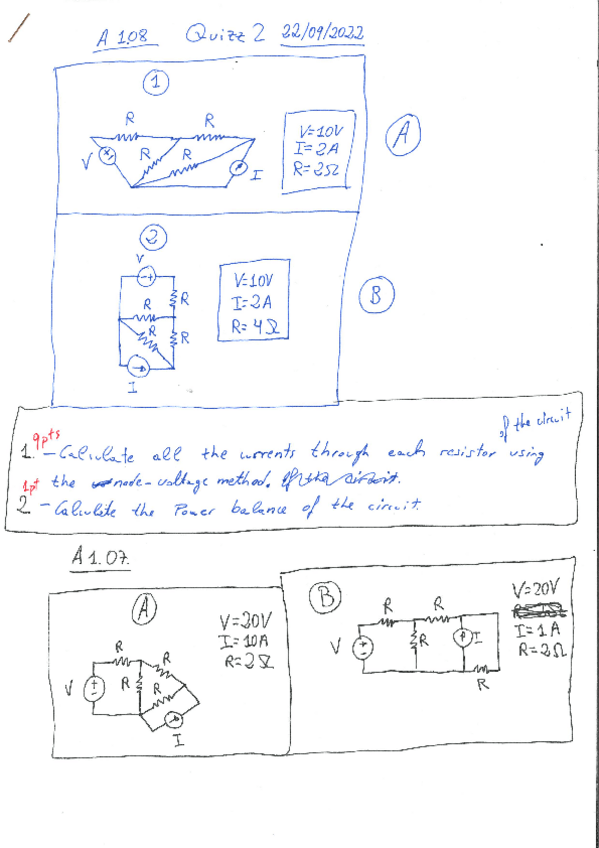 A 1.08 Quizz 2 22/09/2022
1
R R
V R R I
V=10V
I=2A
R=2Ω
A
2
V
R
R
R R
I
V=10V
I=2A
R=4Ω
B
of the circuit
9pts
1. - Calculate all the currents through each resistor using
1pt the node-voltage method.
2 - Calculate the Power balance of the circuit.
A 1.07.
A
V=20V
I=10A
R=2Ω
R R
V R R
I
B
V=20V
I=1A
R=2Ω
R R
V R I
R